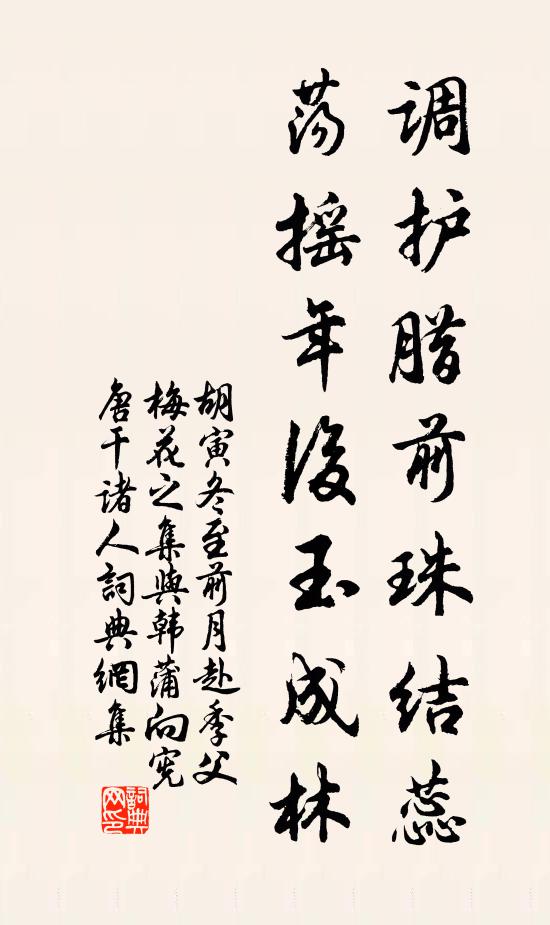 调护腊前珠结蕊
荡摇年後玉成林
胡寅冬至前月赴季父
梅花之集與韩蒲向宪
唐干诸人詞典網集
詞典
网印